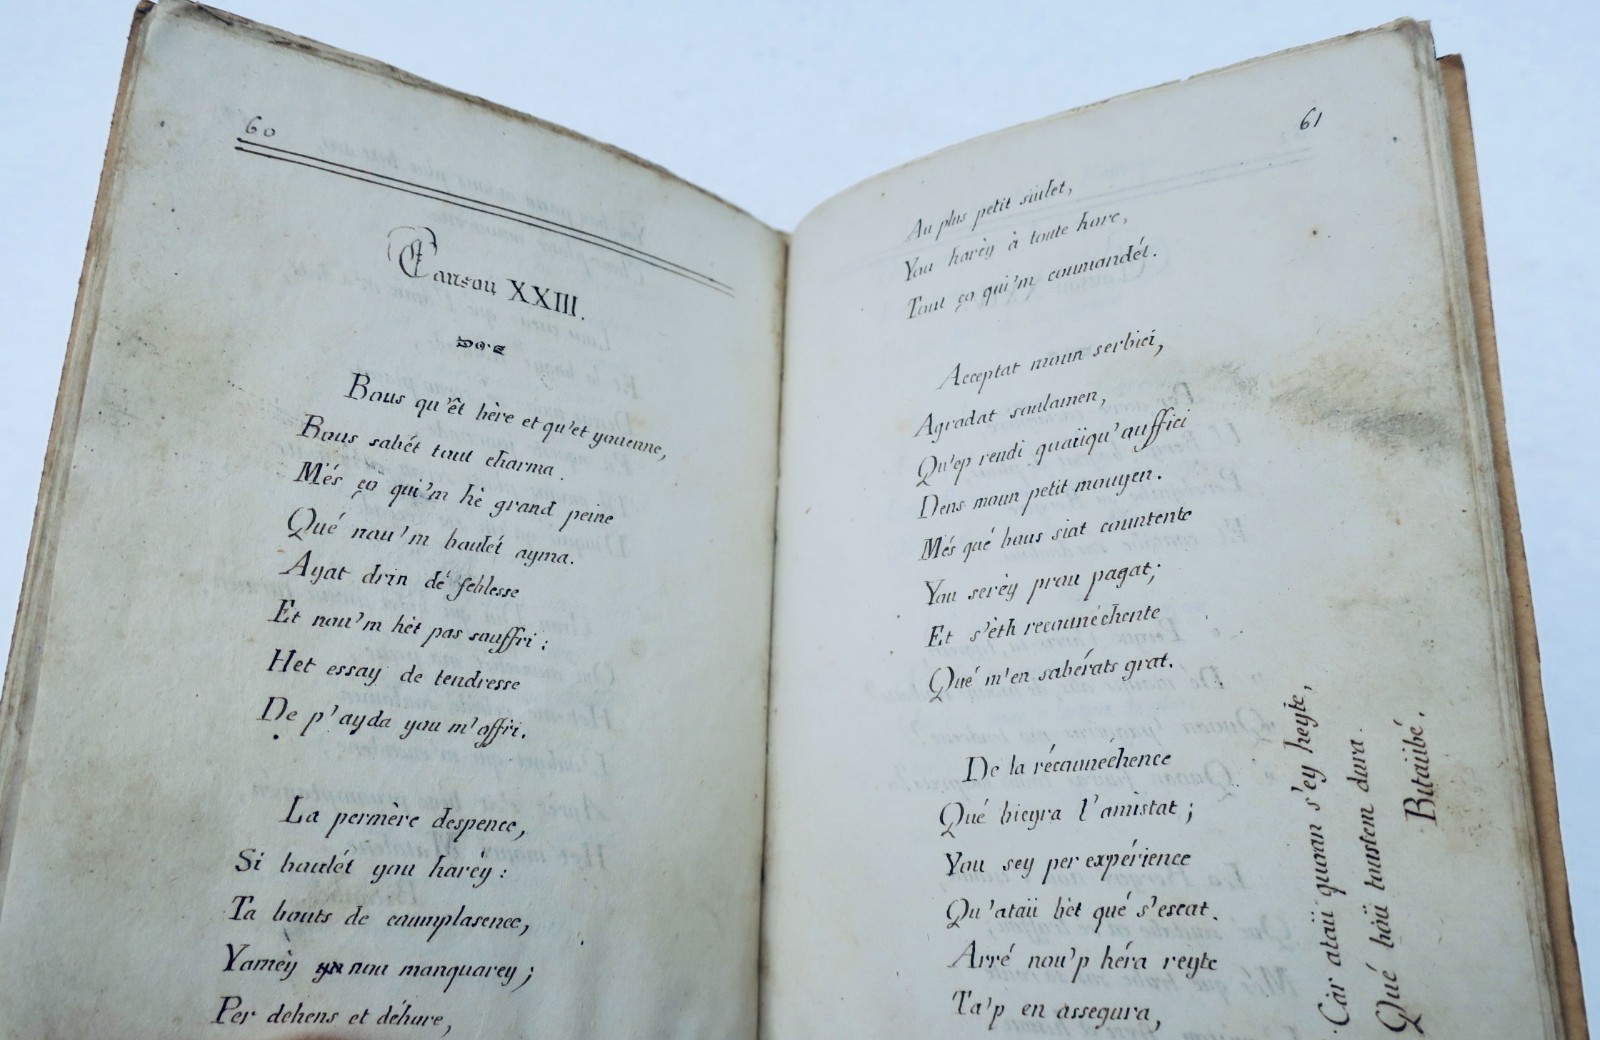 60
Cansou XXIII.
Bous qu'êt hère et qu'et youenne,
Bous sabét tout charma.
Més ço qui'm hè grand peine
Qué nou'm boulét ayma.
Ayat drin dé feblesse
Et nou'm hèt pas souffri :
Het essay de tendresse
De p'ayda you m'offri.
La permère despence,
Si boulét you harèy :
Ta bouts de coumplasence,
Yamèy nou manquarey ;
Per dehens et déhore,
61
Au plus petit siulet,
You harèy à toute hore,
Tout ço qui'm coumandét.
Acceptat moun serbici,
Agradat soulamen,
Qu'ep rendi quaüqu'auffici
Dens moun petit mouyen.
Més qué bous siat countente
You serèy prou pagat;
Et s'èth recounéchente
Qué m'en sabérats grat.
De la récounéchence
Qué bieyra l'amistat ;
You sey per expérience
Qu'ataü hèt qué s'escat.
Arré nou'p héra reyte
Ta'p en assegura,
Càr ataü quoan s'ey heyte,
Qué haü toustem dura.
Bitaübé.